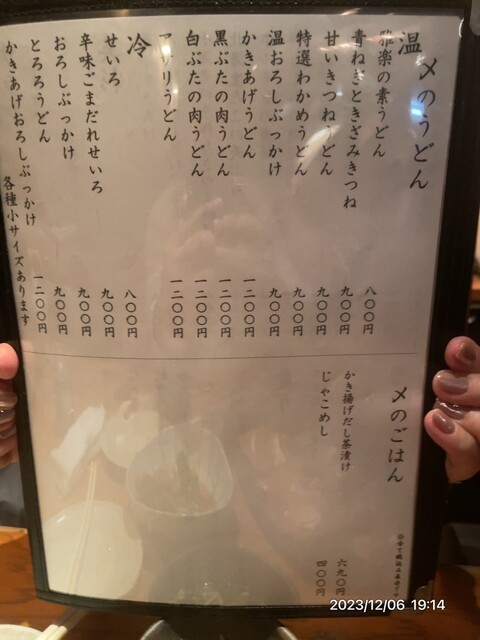 〆のうどん
温
雅楽の素うどん 八〇〇円
青ねぎときざみきつね 九〇〇円
甘いきつねうどん 九〇〇円
特選わかめうどん 九〇〇円
温おろしぶっかけ 九〇〇円
かきあげうどん 一二〇〇円
黒ぶたの肉うどん 一二〇〇円
白ぶたの肉うどん 一二〇〇円
アサリうどん 一二〇〇円
冷
せいろ 八〇〇円
辛味ごまだれせいろ 九〇〇円
おろしぶっかけ 九〇〇円
とろろうどん 九〇〇円
かきあげおろしぶっかけ 一二〇〇円
各種小サイズあります
〆のごはん
かき揚げだし茶漬け 六九〇円
じゃこめし 四〇〇円
2023/12/06 19:14